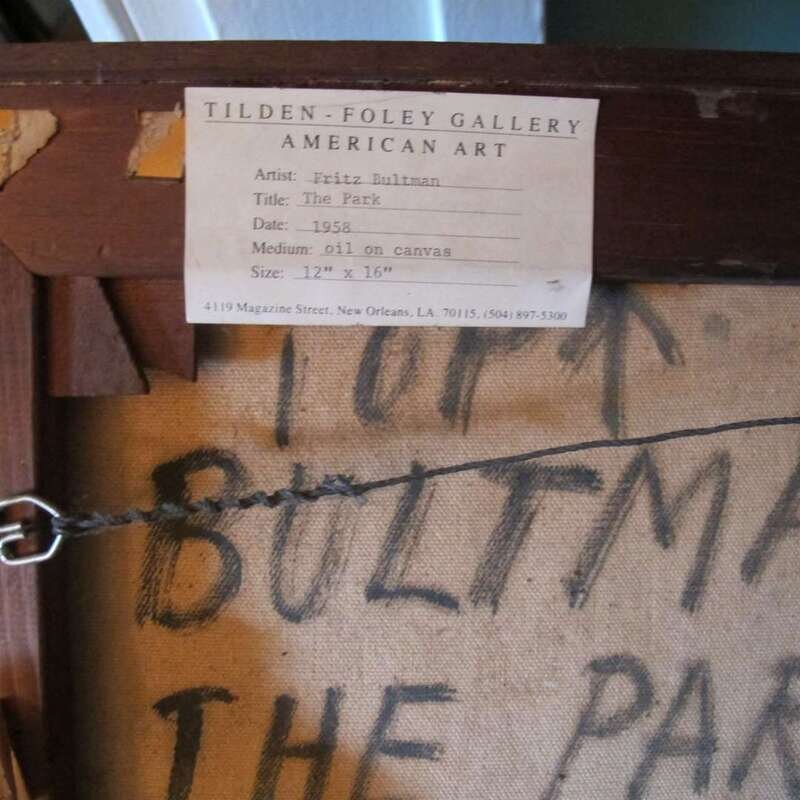 TILDEN - FOLEY GALLERY
AMERICAN ART
Artist: Fritz Bultman
Title: The Park
Date: 1958
Medium: oil on canvas
Size: 12" x 16"
4119 Magazine Street, New Orleans, LA. 70115, (504) 897-5300
TOP ↑
BULTMA
THE PAR